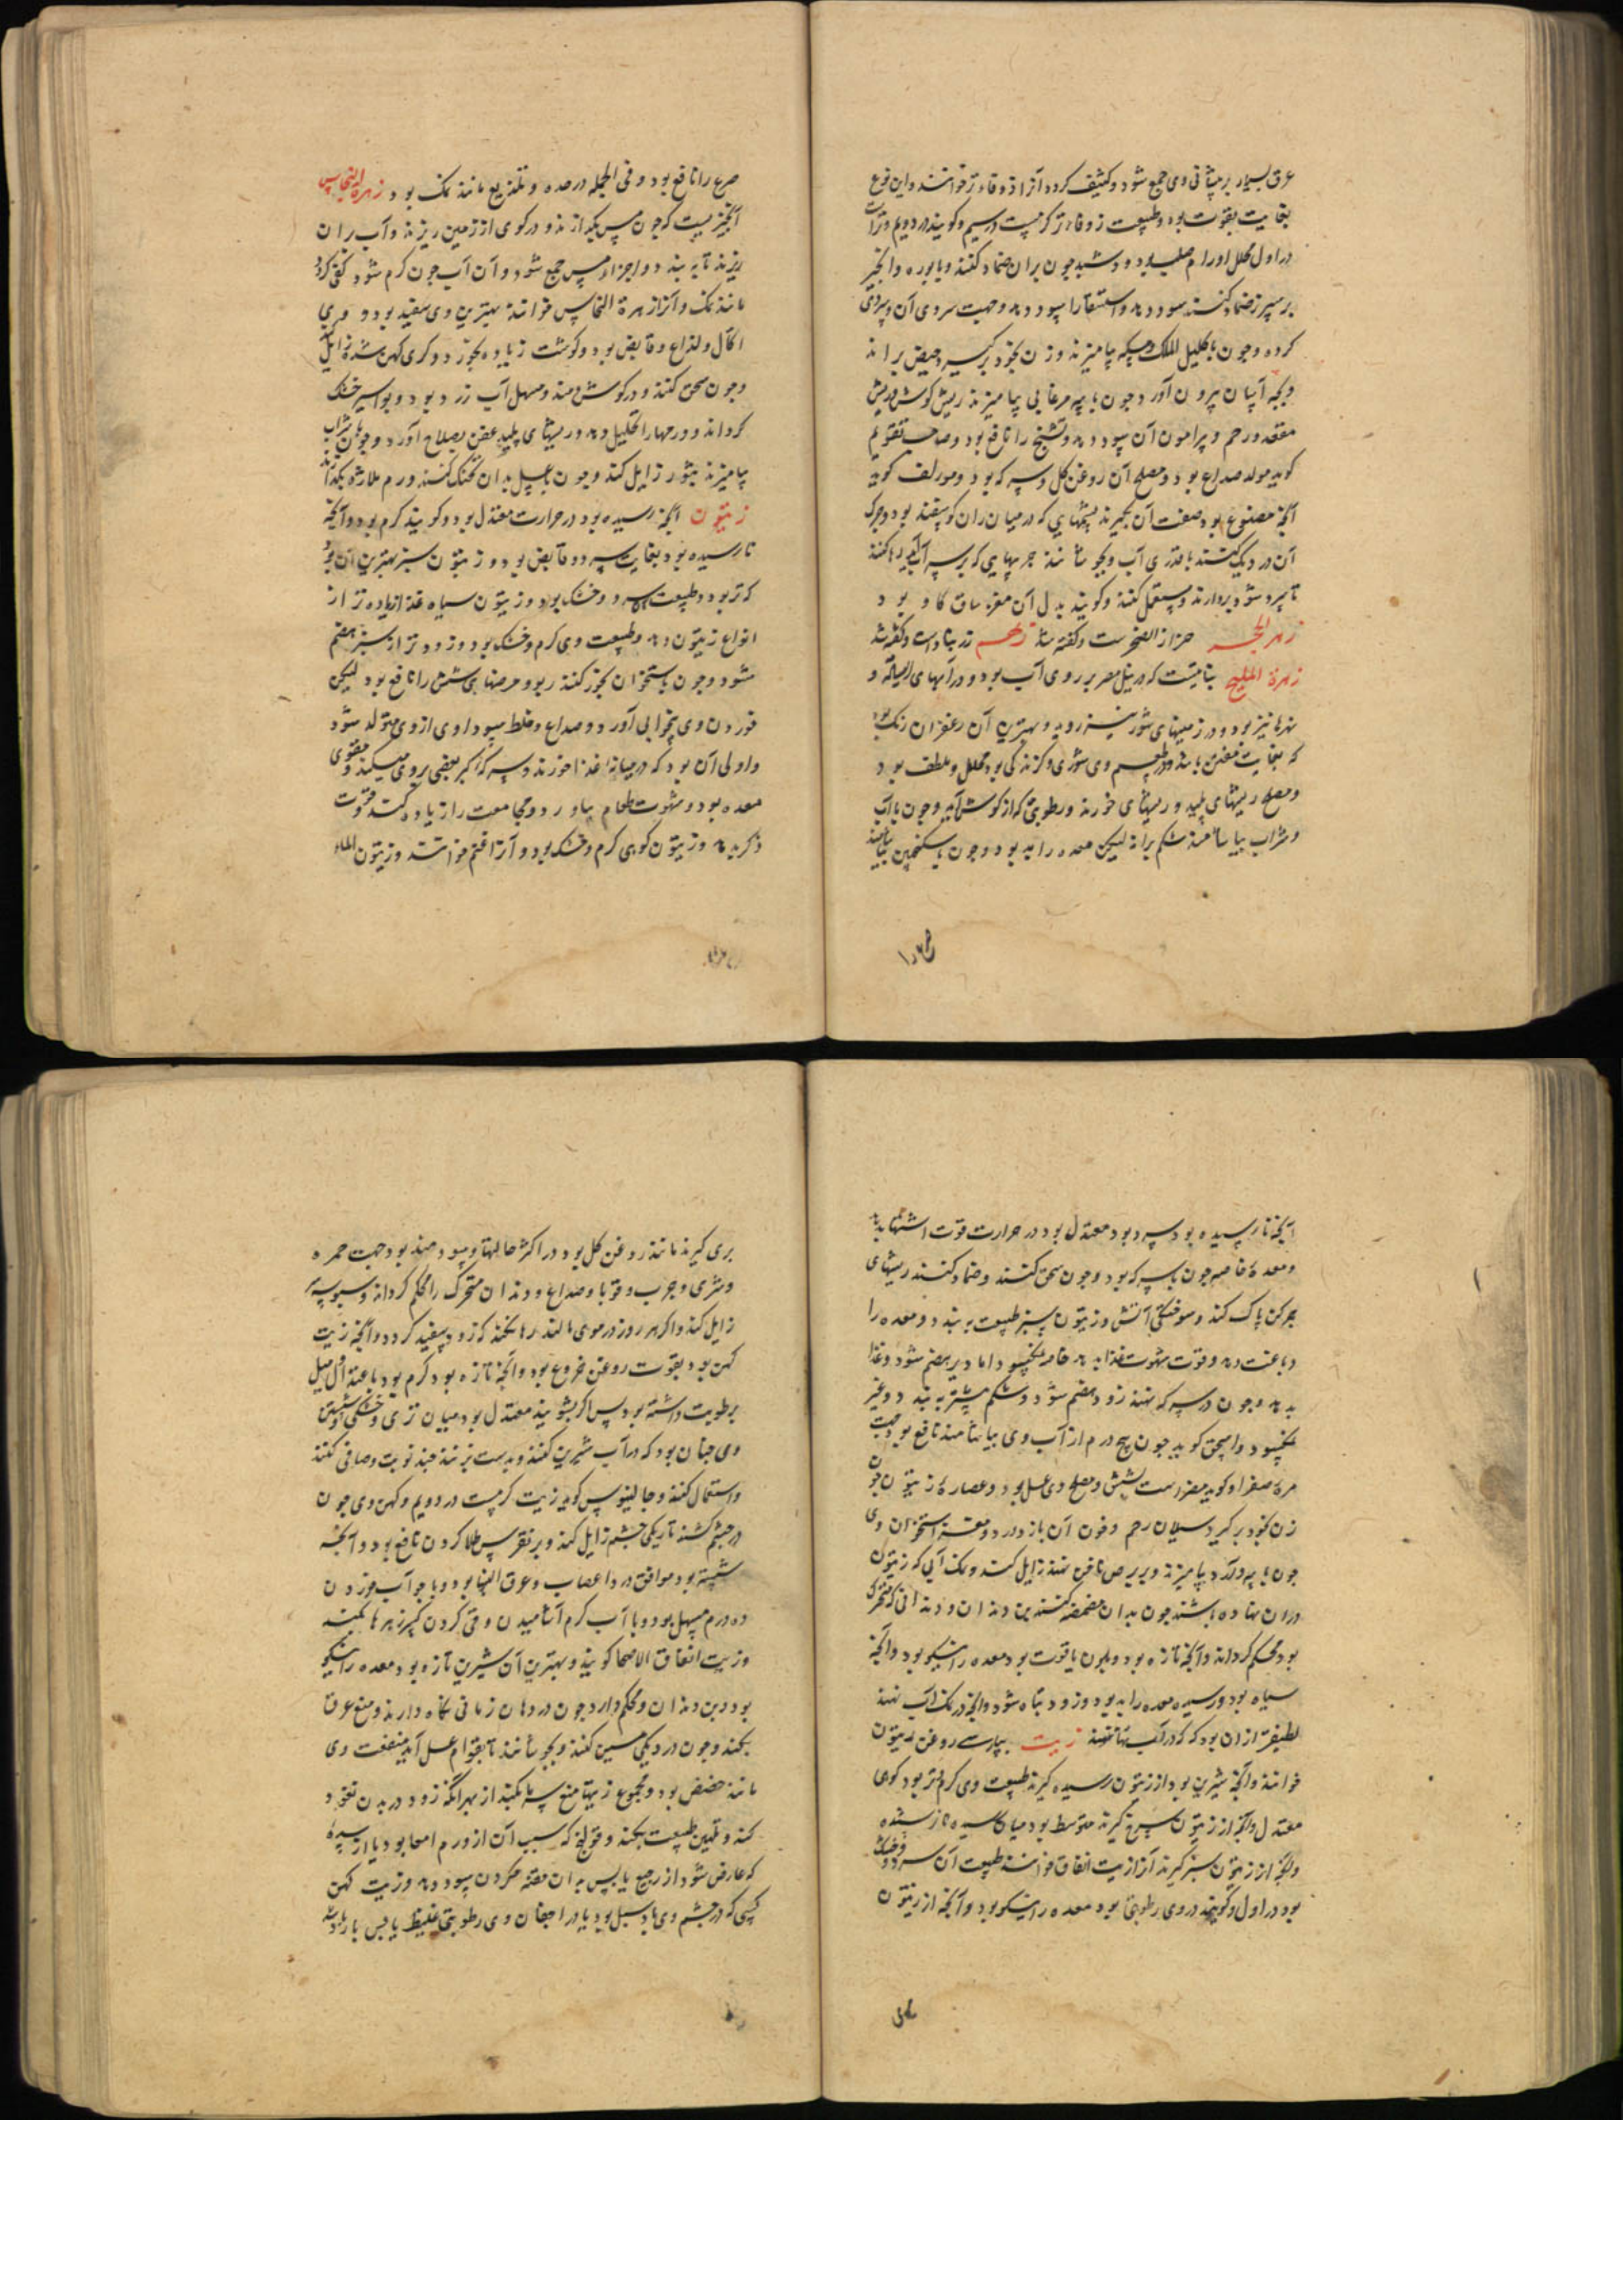 عرق بسیار بر میثانی وی جمع شود و کثیف کردد آنرا زوفاء تر خوانند و این نوع
بغایت بقوت بود و طبیعت زوفاء تر کرمست در سیم و کویند در دویم و تر است
در اول محلل اورام صلب بود و دشبد چون بران ضماد کنند و با بوره و انجیر
بر سپرز ضماد کنند سود دهد و استسقا را سود دهد و جهت سردی آن و سردی
کرده و چون با کلیل الملک و مسکه بیامیزند و زن بخود برکیرد حیض براند
و بچه آسان بیرون آورد و چون با پیه مرغابی بیامیزند ریش کوش و ریش
مقعد و رحم و پیرامون آن سود دهد و تشنج را نافع بود و صاحب تقویم
کوید مولد صداع بود و مصلح آن روغن کل و سرکه بود و مولف کوید
آنچه مصنوع بود صفت آن بکیرند پشمهایی که در میان ران کوسفند بود و چرک
آن در دیک کنند با قدری آب و بجوشانند چربیهایی که بر سر آب آید رها کنند
تا سرد شود و بردارند و مستعمل کنند و کویند بدل آن مغز ساق کاو بود
زهر الحجر حزاز الصخرست و کفته شد زهم زبادست و کفته شد
زهرة الملح بنایتست که در نیل مصر بر روی آب بود و در آبهای ایستاده و
نهرها نیز بود و در زمینهای شور نیز روید و بهترین آن زعفران رنک بود
که بغایت متعفن باشد و در طعم وی شوری و کزندکی بود محلل و ملطف بود
و مصلح ریشهای پلید و ریشهای خورنده و رطوبتی که از کوش آید و چون با آب
و شراب بیاشامند شکم براند لیکن معده را بد بود و چون با سکنجبین بیاشامند
صرع را نافع بود و فی الجمله در حده و تلذیع مانند نمک بود زهرة النحاس
آنچیزیست که چون مس بکدازند و در کوی از زمین ریزند و آب بران
ریزند تا ببندد و اجزاء مس جمع شود و آن آب چون کرم شود کفی کردد
مانند نمک و آنرا زهرة النحاس خوانند بهترین وی سفید بود و وی
اکال و لذاع و قابض بود و کوشت زیاده بخورد و کری کهن شده زایل کند
و چون سحق کنند و در کوش دمند و مسهل آب زرد بود و بواسیر خشک
کرداند و ورمها را تحلیل دهد و ریشهای پلید عفن بصلاح آورد و چون با شراب
بیامیزند بثور زایل کند و چون با عسل بدان تحنک کنند ورم ملازه بکدازد
زیتون آنچه رسیده بود در حرارت معتدل بود و کویند کرم بود و آنچه
نارسیده بود بغایت سرد و قابض بود و زیتون سبز بهترین آن بود
که تر بود و طبیعت سرد و خشک بود و زیتون سیاه غذا زیاده تر از
انواع زیتون دهد و طبیعت وی کرم و خشک بود و زودتر از سبز هضم
شود و چون با استخوان بخور کنند ربو و مرضهای شش را نافع بود لیکن
خوردن وی بیخوابی آورد و صداع و خلط سوداوی از وی متولد شود
و اولی آن بود که در میانه غذا خورند و سرکه اکر بعضی بر وی میکنند مقوی
معده بود و شهوت طعام بیاورد و مجامعت را زیاده کند و قوت
ذکر بدهد و زیتون کوهی کرم و خشک بود و آنرا اغنم خوانند و زیتون الماء
آنچه نارسیده بود سرد بود معتدل بود در حرارت قوت اشتها بدهد
و معده خاصه چون با سرکه بود و چون سحق کنند و ضماد کنند ریشهای
چرکن پاک کند و سوختکی آتش و زیتون سبز طبیعت ببندد و معده را
دباغت دهد و قوت شهوت غذا بدهد خاصه بکسود اما دیر هضم شود و غذا
بد دهد و چون در سرکه نهند زود هضم شود و شکم بیشتر ببندد و غیر
بکسود و اسحق کوید چون پنج درم از آب وی بیاشامند نافع بود جهت
مره صفرا و کوید مضر است بشش و مصلح وی عسل بود و عصاره زیتون چون
زن بخود برکیرد سیلان رحم و خون آن باز دارد و مغز استخوان وی
چون با پیه و آرد بیامیزند و بر برص ناخن نهند زایل کند و نمک آبی که زیتون
دران نهاده باشند چون بدان مضمضه کنند بن دندان و دندانی که متحرک
بود محکم کرداند و آنچه تازه بود و ملون یا قوت بود معده را نیکو بود و آنچه
سیاه بود و رسیده معده را بد بود و زود تباه شود و آنچه در نمک آب نهند
لطیفتر ازان بود که در آب تنها نهند زیت بپارسی روغن زیتون
خوانند و آنچه شیرین بود از زیتون رسیده کیرند طبیعت وی کرم و تر بود کوهی
معتدل و آنچه از زیتون سرخ کیرند متوسط بود میان رسیده و نارسیده
و آنچه از زیتون سبز کیرند آنرا زیت انفاق خوانند طبیعت آن سرد و خشک
بود در اول و کویند در وی رطوبتی بود معده را نیکو بود و آنچه از زیتون
بری کیرند مانند روغن کل بود در اکثر حالها و سودمند بود جهت حمره
و شری و جرب و قوبا و صداع و دندان متحرک را محکم کرداند و سبوسه
زایل کند و اکر هر روز در موی مالند رها نکند که زود سفید کردد و آنچه زیت
کهن بود بقوت روغن خروع بود و آنچه تازه بود کرم بود با عتدال میل
برطوبت داشته بود پس اکر بشویند معتدل بود میان تری و خشکی و شستن
وی چنان بود که در آب شیرین کنند و بدست بزنند چند نوبت و صافی کنند
و استعمال کنند و جالینوس کوید زیت کرمست در دویم و کهن وی چون
در چشم کشند تاریکی چشم زایل کند و بر نقرس طلا کردن نافع بود و آنچه
شسته بود موافق درد اعصاب و عرق النسا بود و با جو آب خوردن
ده درم مسهل بود و با آب کرم آشامیدن و قی کردن کسر زهرها بکند
و زیت انفاق الاضحا کویند و بهترین آن شیرین تازه بود معده را نیکو
بود و بن دندان محکم دارد چون در دهان زمانی نکاه دارند و منع عرق
بکند و چون در دیکی مسین کنند و بجوشانند تا بقوام عسل آید منفعت وی
مانند حضض بود و مجموع زیتها منع سرما بکند از بهر آنکه زود در بدن نفوذ
کند و تلیین طبیعت بکند و قولنج که سبب آن از ورم امعا بود یا از سده
که عارض شود از رجیع یابس بدان حقنه کردن سود دهد و زیت کهن
کسی که در چشم وی باد سبل بود یا در اجفان وی رطوبتی غلیظ یا یبس یا ریاد باشد